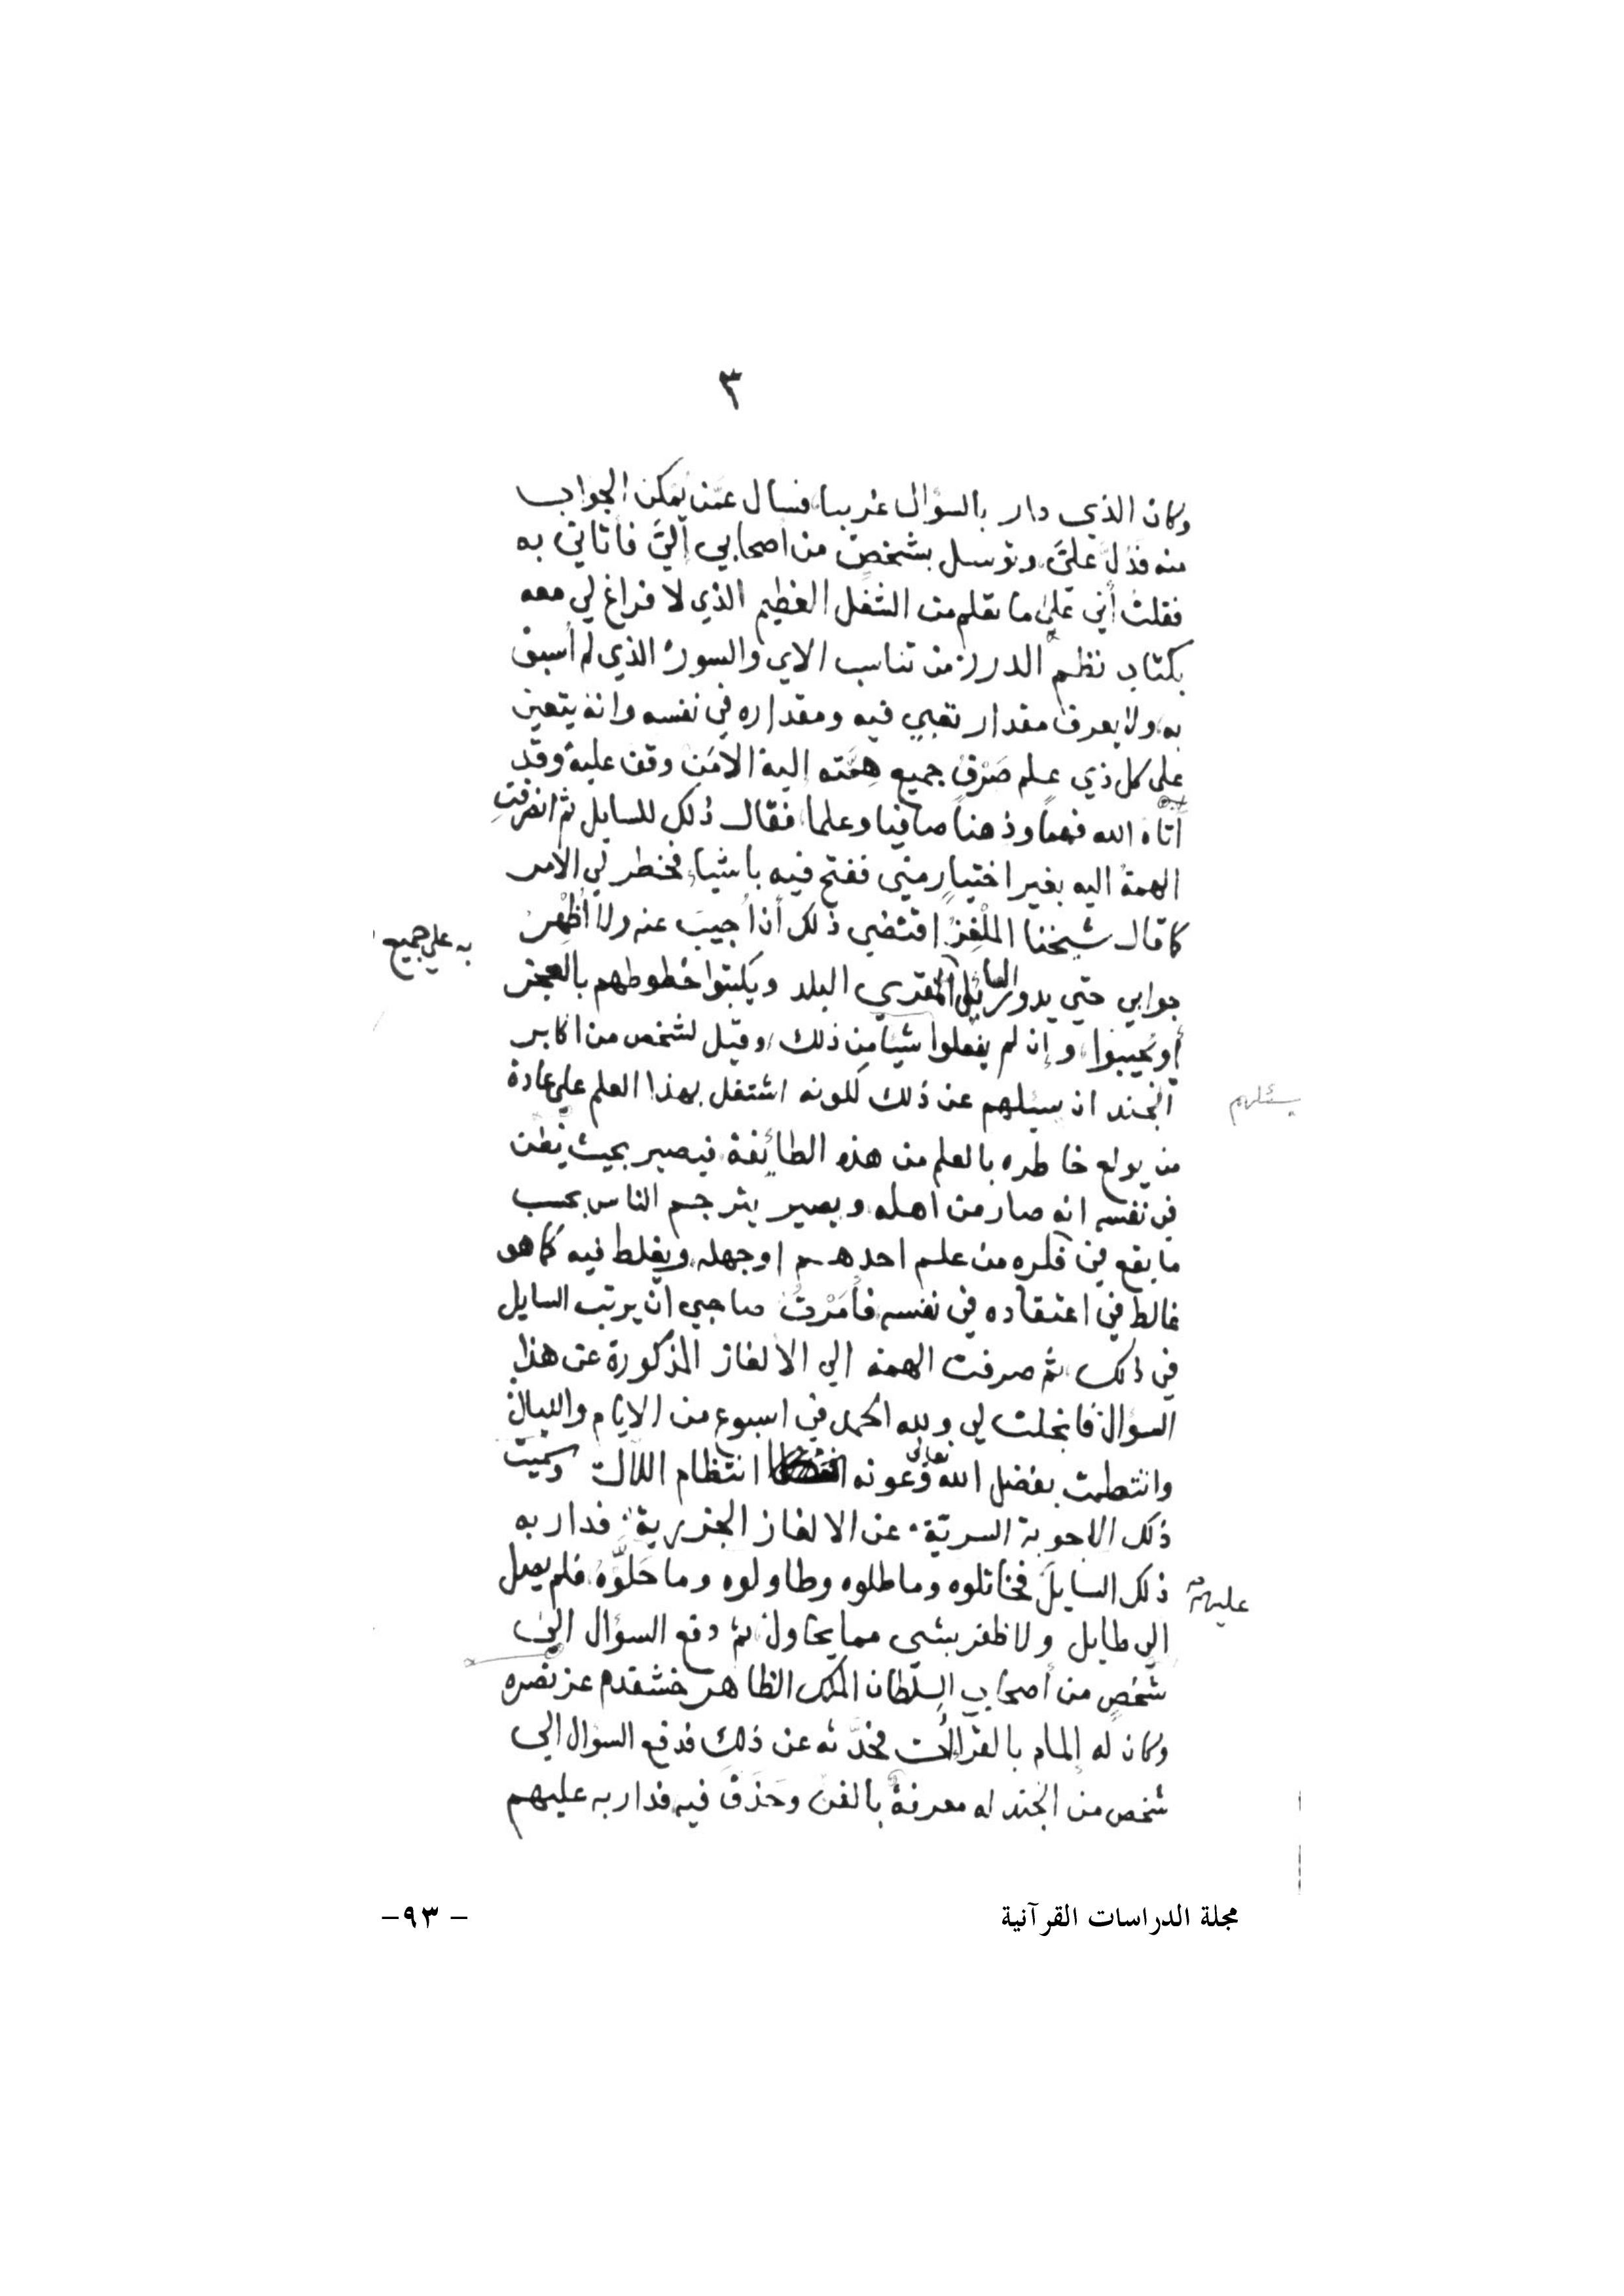 ٣
وكان الذي دار بالسؤال غريبا، فسال عمّن يمكن الجواب
منه فدُلَّ عليَّ، وتوسل بشخص من اصحابي إليَّ فأتاني به
فقلت أني علي ما تعلم من الشغل العظيم الذي لا فراغ لي معه
بكتاب نظم الدرر من تناسب الاي والسور الذي لم أسبق
به، ولا يعرف مقدار تعبي فيه ومقداره في نفسه وانه يتعين
على كل ذي علم صَرْفُ جميع هِمَّته اليه الا مَن وقف عليه وقد
آتاه الله فهماً وذهناً صافيا وعلما، فقال ذلك للسايل ثم انصرفتِ
الهمة اليه بغير اختيارٍ مني ففتح فيه باشياء، فخطر لي الامر
كما قال شيخنا الملْغِز اقتضي ذلك أن أُجيبَ عنه ولا أُظْهِر
به علي جميع
جوابي حتي يدور السائل المقري البلد ويكتبوا خطوطهم بالعجز
أو يجيبوا، وإن لم يفعلوا شيئا من ذلك، وقيل لشخص من اكابر
الجند ان سيلهم عن ذلك لكونه اشتغل بهذا العلم علي عادة
يسئلهم
من يولع خاطره بالعلم من هذه الطائفة، فيصير بحيث يظن
في نفسه انه صار من اهله، ويصير يترجم الناس بحسب
ما يقع في فكره من علم احدهم او جهله، ويغلط فيه كما هو
غالط في اعتقاده في نفسه، فأمَرْتُ صاحبي ان يرتب السايل
في ذلك، ثم صرفت الهمة الي الالغاز المذكورة عن هذا
السؤال، فانجلت لي ولله الحمد في اسبوع من الايام والليال
وانتظمت بفضل الله تعالى وعونه انتظام اللآل وسميت
ذلك الاجوبة السريّة عن الالغاز الجزرية، فدار به
ذلك السايل فخاتلوه وماطلوه وطاولوه وما حَلُّوه، فلم يصل
عليهم
الي طايل ولا ظفر بشي مما يحاول، ثم دفع السؤال الي
شخصٍ من أصحاب السلطان الملك الظاهر خشقدم عز نصره
وكان له إلمام بالقراآت فحدَّثه عن ذلك فدفع السؤال الي
شخص من الجند له معرفة بالفن وحَذَق فيه، فدار به عليهم
مجلة الدراسات القرآنية
– ٩٣–